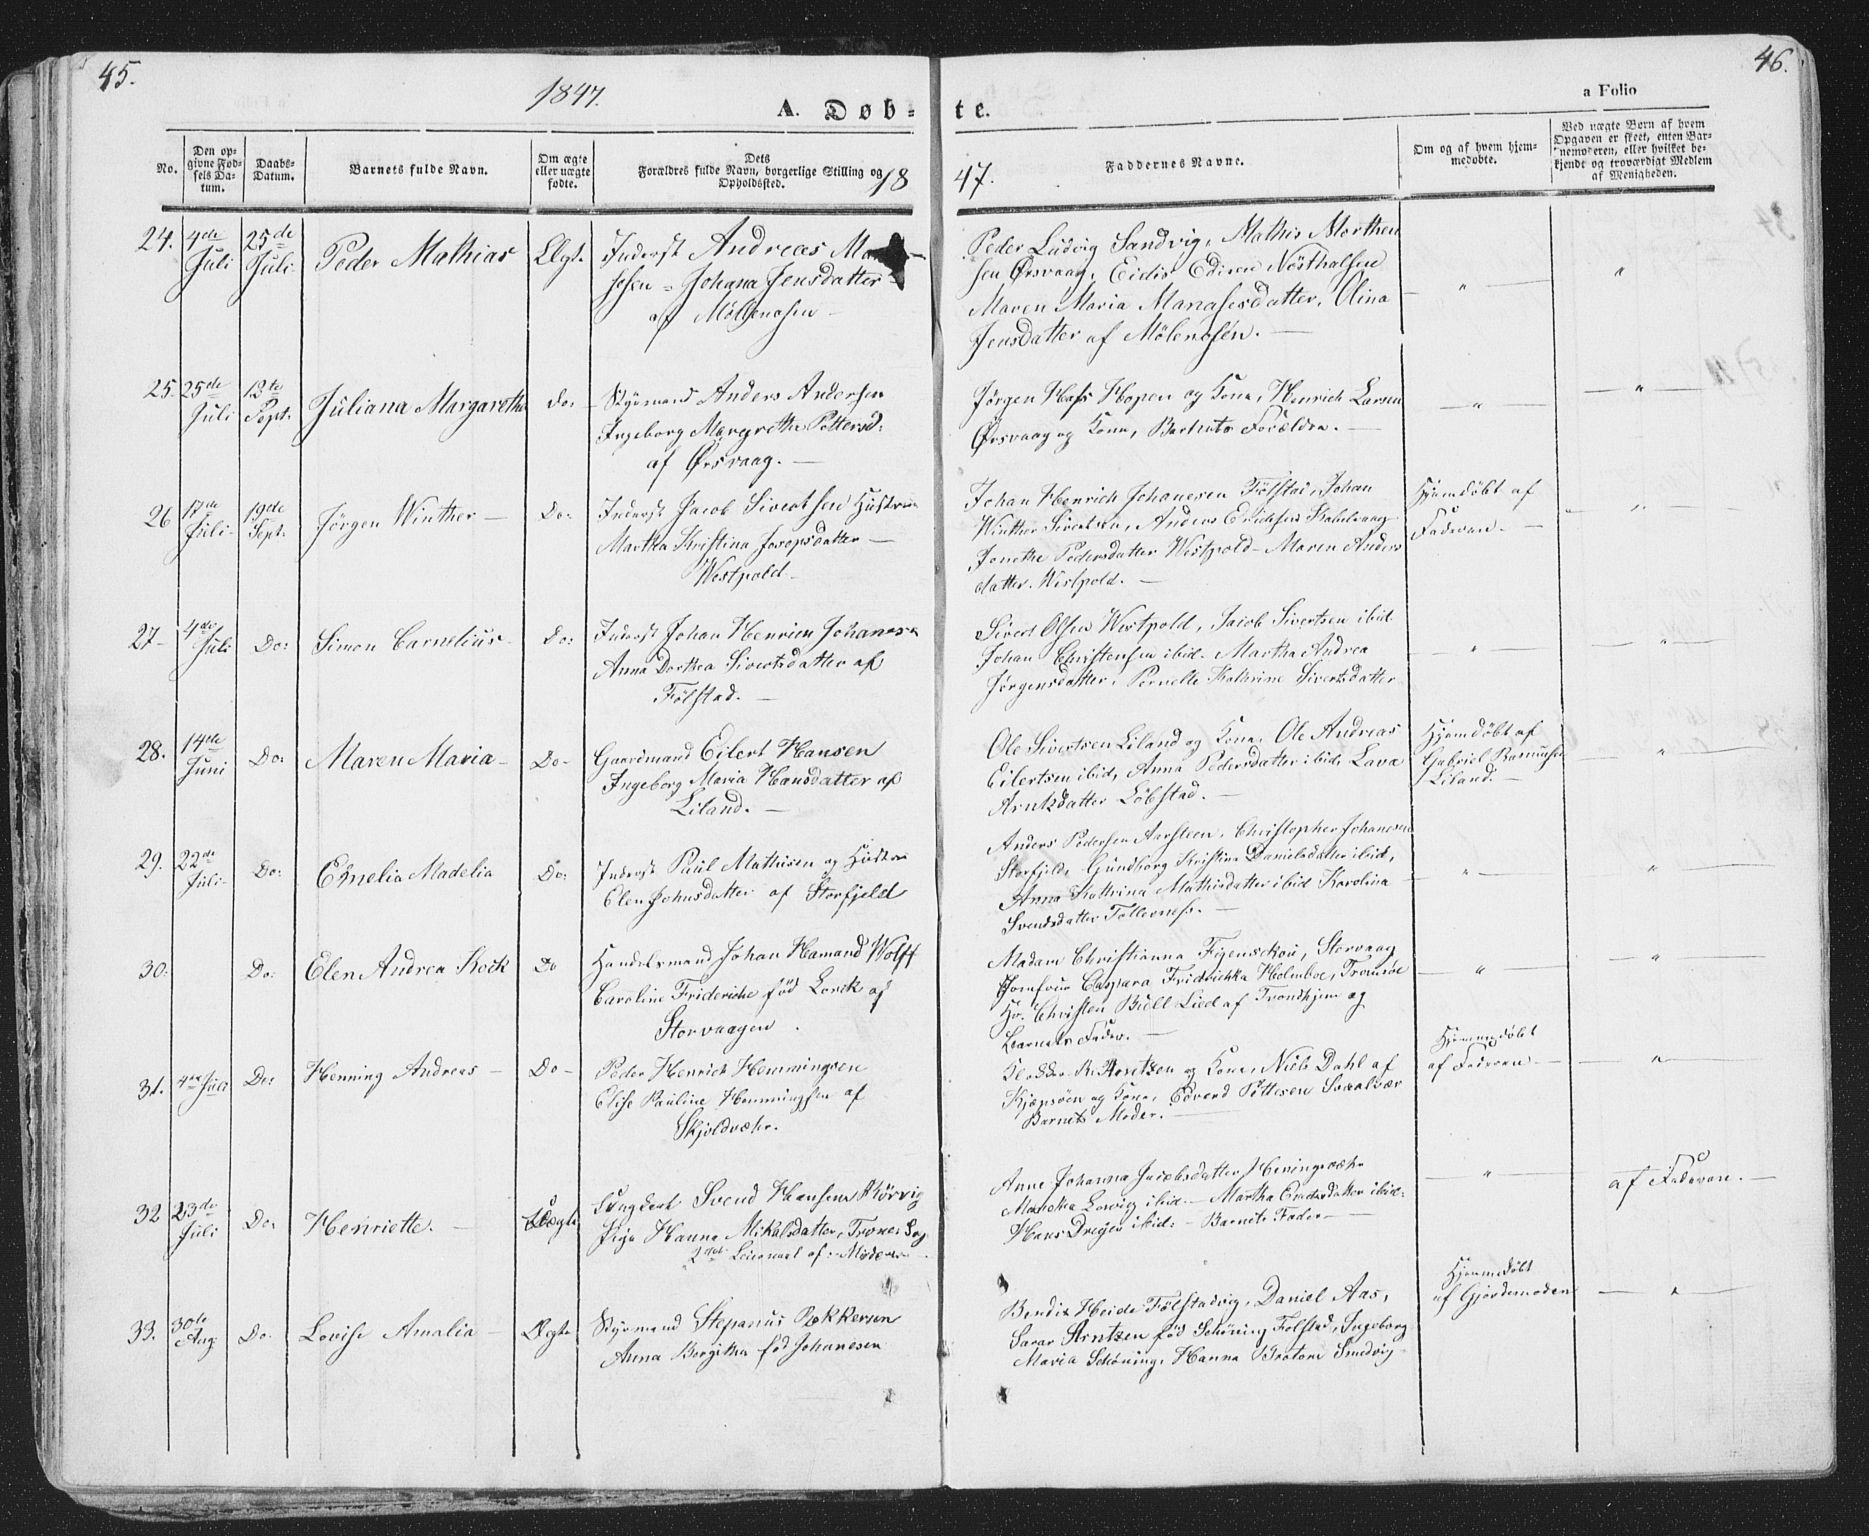 45.
46.
1847.
A. Døb-
te.
a Folio
No.
Den op-
givne Fød-
sels Da-
tum.
Daabs-
Datum.
Barnets fulde Navn.
Om ægte
eller uægte
fødte.
Dets
Forældres fulde Navn, borgerlige Stilling og
Opholdssted.
18
47.
Faddernes Navne.
Om og af hvem hjem-
medøbte.
Ved uægte Børn af hvem
Opgaven er skeet, enten Bar-
nemoderen, eller hvilket be-
kjendt og troværdigt Medlem
af Menigheden.
24.
4de
Juli
25de
Juli
Peder Mathias
Ægt.
Inderst Andreas
Johana Jensdatter
af
Peder Ludvig Sandvig, Mathis Morthen
sen Ørsvaag,
Maren Maria Manasesdatter, Olina
Jensdatter af
25.
25de
Juli
12te
Sept.
Juliana Margaretha
Do:
Styrmand Anders Andersen
Ingeborg Margretha Pettersd:
af Ørsvaag.
Jørgen Hass Hopen og Kone, Henrich Larsen
Ørsvaag og Kone, Barnets Forældre.
26
17de
Juli
19de
Sept.
Jørgen Winther
Do:
Inderst Jacob Sivertsen Hustru
Martha Kristina Jacopsdatter
Westpold
Johan Henrich Johanesen Fölstad, Johan
Winther Sivertsen, Anders
Jonetha Pedersdatter Westpold - Maren Anders
datter Westpold.
Hjemdöbt af
Faderen.
27
4de
Juli
Do:
Simon Carnelius
Do:
Inderst Johan Henrich Johanesen
Anna Dorthea Sivertsdatter af
Fölstad.
Sivert Olsen Westpold, Jacob Sivertsen ibid
Johan Christensen ibid. Martha Andrea
Jørgensdatter, Pernelle Kathrine Sivertsdatter
28.
14de
Juni
Do:
Maren Maria
Do
Gaardmand Eilert Hansen
Ingeborg Maria Hansdatter af
Liland.
Ole Sivertsen Liland og Kone, Ole Andreas
Eilertsen ibid, Anna Pedersdatter ibid, Lava
Arntzdatter Löbstad.
Hjemdöbt af
Gabriel Rasmusen
Liland.
29.
22de
Juli
Do:
Emelia Madelia
Do:
Inderst Paul Mathisen og Hustru
Elen Johnsdatter af Storfjeld
Anders Pedersen Aarsteen, Christopher Johanesen
Storfjeld, Gundborg Kristina Danielsdatter ibid,
Anna Kathrina Mathisdatter ibid Karolina
Svendsdatter
30.
Do:
Elen Andrea Kock
Do
Handelsmand Johan Hemand Wolff
Caroline Frideriche föd Lorck af
Storvaagen
Madam Christianna Figenschou, Storvaag
Jomfrue Caspara Fridrichka Holmboe, Tromsöe
Hr. Christen Bull Lied af Trondhjem og
Barnets Fader.
31.
4de Juli
Do:
Henning Andreas
Do
Peder Henrich Hemmingsen
Elise Pauline Hemmingsen af
Skjoldvæhr.
Klokker R. Arntzen og Kone, Niels Dahl af
Kjepsöen og Kone, Edverd Pettesen
Barnets Moder.
Hjemmedöbt
af Faderen
32
23de
Juli
Do:
Henriette.
Uægte
Ungkarl Svend Hansen Körvig
Pige Hanna Mikalsdatter,
2det Leiermaal af: Moderen
Anne Johanna Jacobsdatter Heningsvæhr
ibid: Martha ibid:
Hans Dreyer ibid: Barnets Fader
af Faderen.
33.
30te
Aug
Do
Lovise Amalia
Ægte
Styrmand Stepanus Rekkersen
Anna Bergitha föd Johanesen
Bendix Heide Fölstadvig, Daniel Aas,
Sarar Arntzen föd Schöning Fölstad, Ingeborg
Maria Schöning, Hanna Smedvig
Hjemmedöbt
af Gjordemoderen